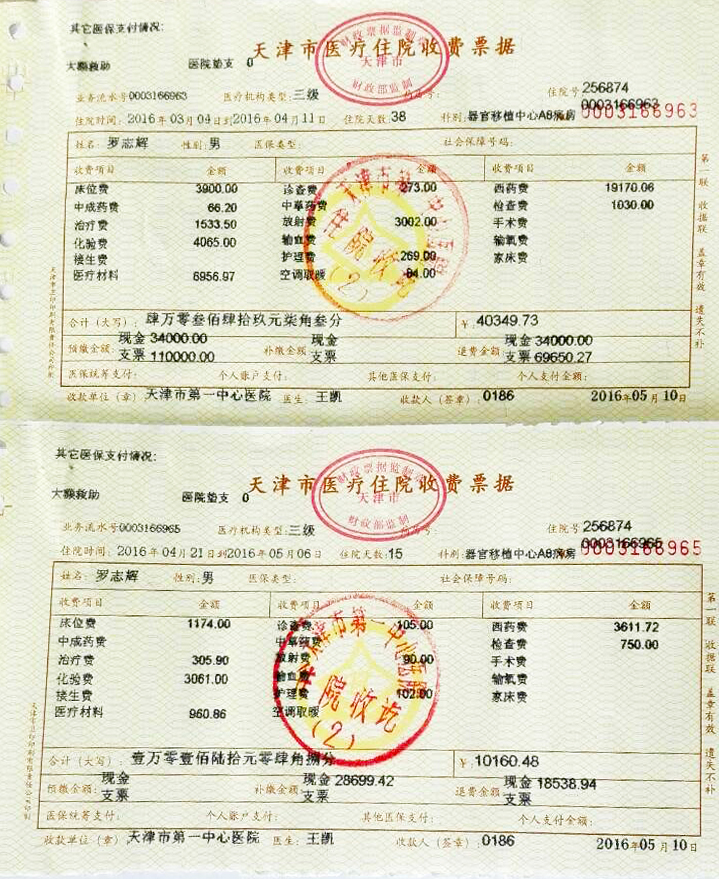 其它医保支付情况:
天津市医疗住院收费票据
大额救助 医院垫支 0
财政票据监制
天津市
财政部监制
业务流水号0003166963 医疗机构类型:三级 住院号 256874
0003166963
0003166963
住院时间: 2016年03月04日到2016年04月11日 住院天数:38 科别:器官移植中心A8病房
姓名: 罗志辉 性别:男 医保类型: 社会保障号码:
收费项目 金额 收费项目 金额 收费项目 金额
床位费 3900.00 诊查费 273.00 西药费 19170.06
中成药费 66.20 中草药费 检查费 1030.00
治疗费 1533.50 放射费 3002.00 手术费
化验费 4065.00 输血费 输氧费
接生费 护理费 269.00 家床费
医疗材料 6956.97 空调取暖 84.00
合计(大写): 肆万零叁佰肆拾玖元柒角叁分 ¥: 40349.73
预缴金额: 现金 34000.00 补缴金额: 现金 退费金额: 现金 34000.00
支票 110000.00 支票 支票 69650.27
医保统筹支付: 个人账户支付: 其他医保支付: 个人支付金额:
收款单位(章) 天津市第一中心医院 医生: 王凯 收款人(签章): 0186 2016年05月10日
第一联 收据联 盖章有效 遗失不补
住院收讫
(2)
其它医保支付情况:
天津市医疗住院收费票据
大额救助 医院垫支 0
财政票据监制
天津市
财政部监制
业务流水号0003166965 医疗机构类型:三级 住院号 256874
0003166965
0003166965
住院时间: 2016年04月21日到2016年05月06日 住院天数:15 科别:器官移植中心A8病房
姓名: 罗志辉 性别:男 医保类型: 社会保障号码:
收费项目 金额 收费项目 金额 收费项目 金额
床位费 1174.00 诊查费 105.00 西药费 3611.72
中成药费 中草药费 检查费 750.00
治疗费 305.90 放射费 90.00 手术费
化验费 3061.00 输血费 输氧费
接生费 护理费 102.00 家床费
医疗材料 960.86 空调取暖
合计(大写): 壹万零壹佰陆拾元零肆角捌分 ¥: 10160.48
预缴金额: 现金 补缴金额: 现金 28699.42 退费金额: 现金 18538.94
支票 支票 支票
医保统筹支付: 个人账户支付: 其他医保支付: 个人支付金额:
收款单位(章) 天津市第一中心医院 医生: 王凯 收款人(签章): 0186 2016年05月10日
第一联 收据联 盖章有效 遗失不补
天津市第一中心医院
住院收讫
(2)